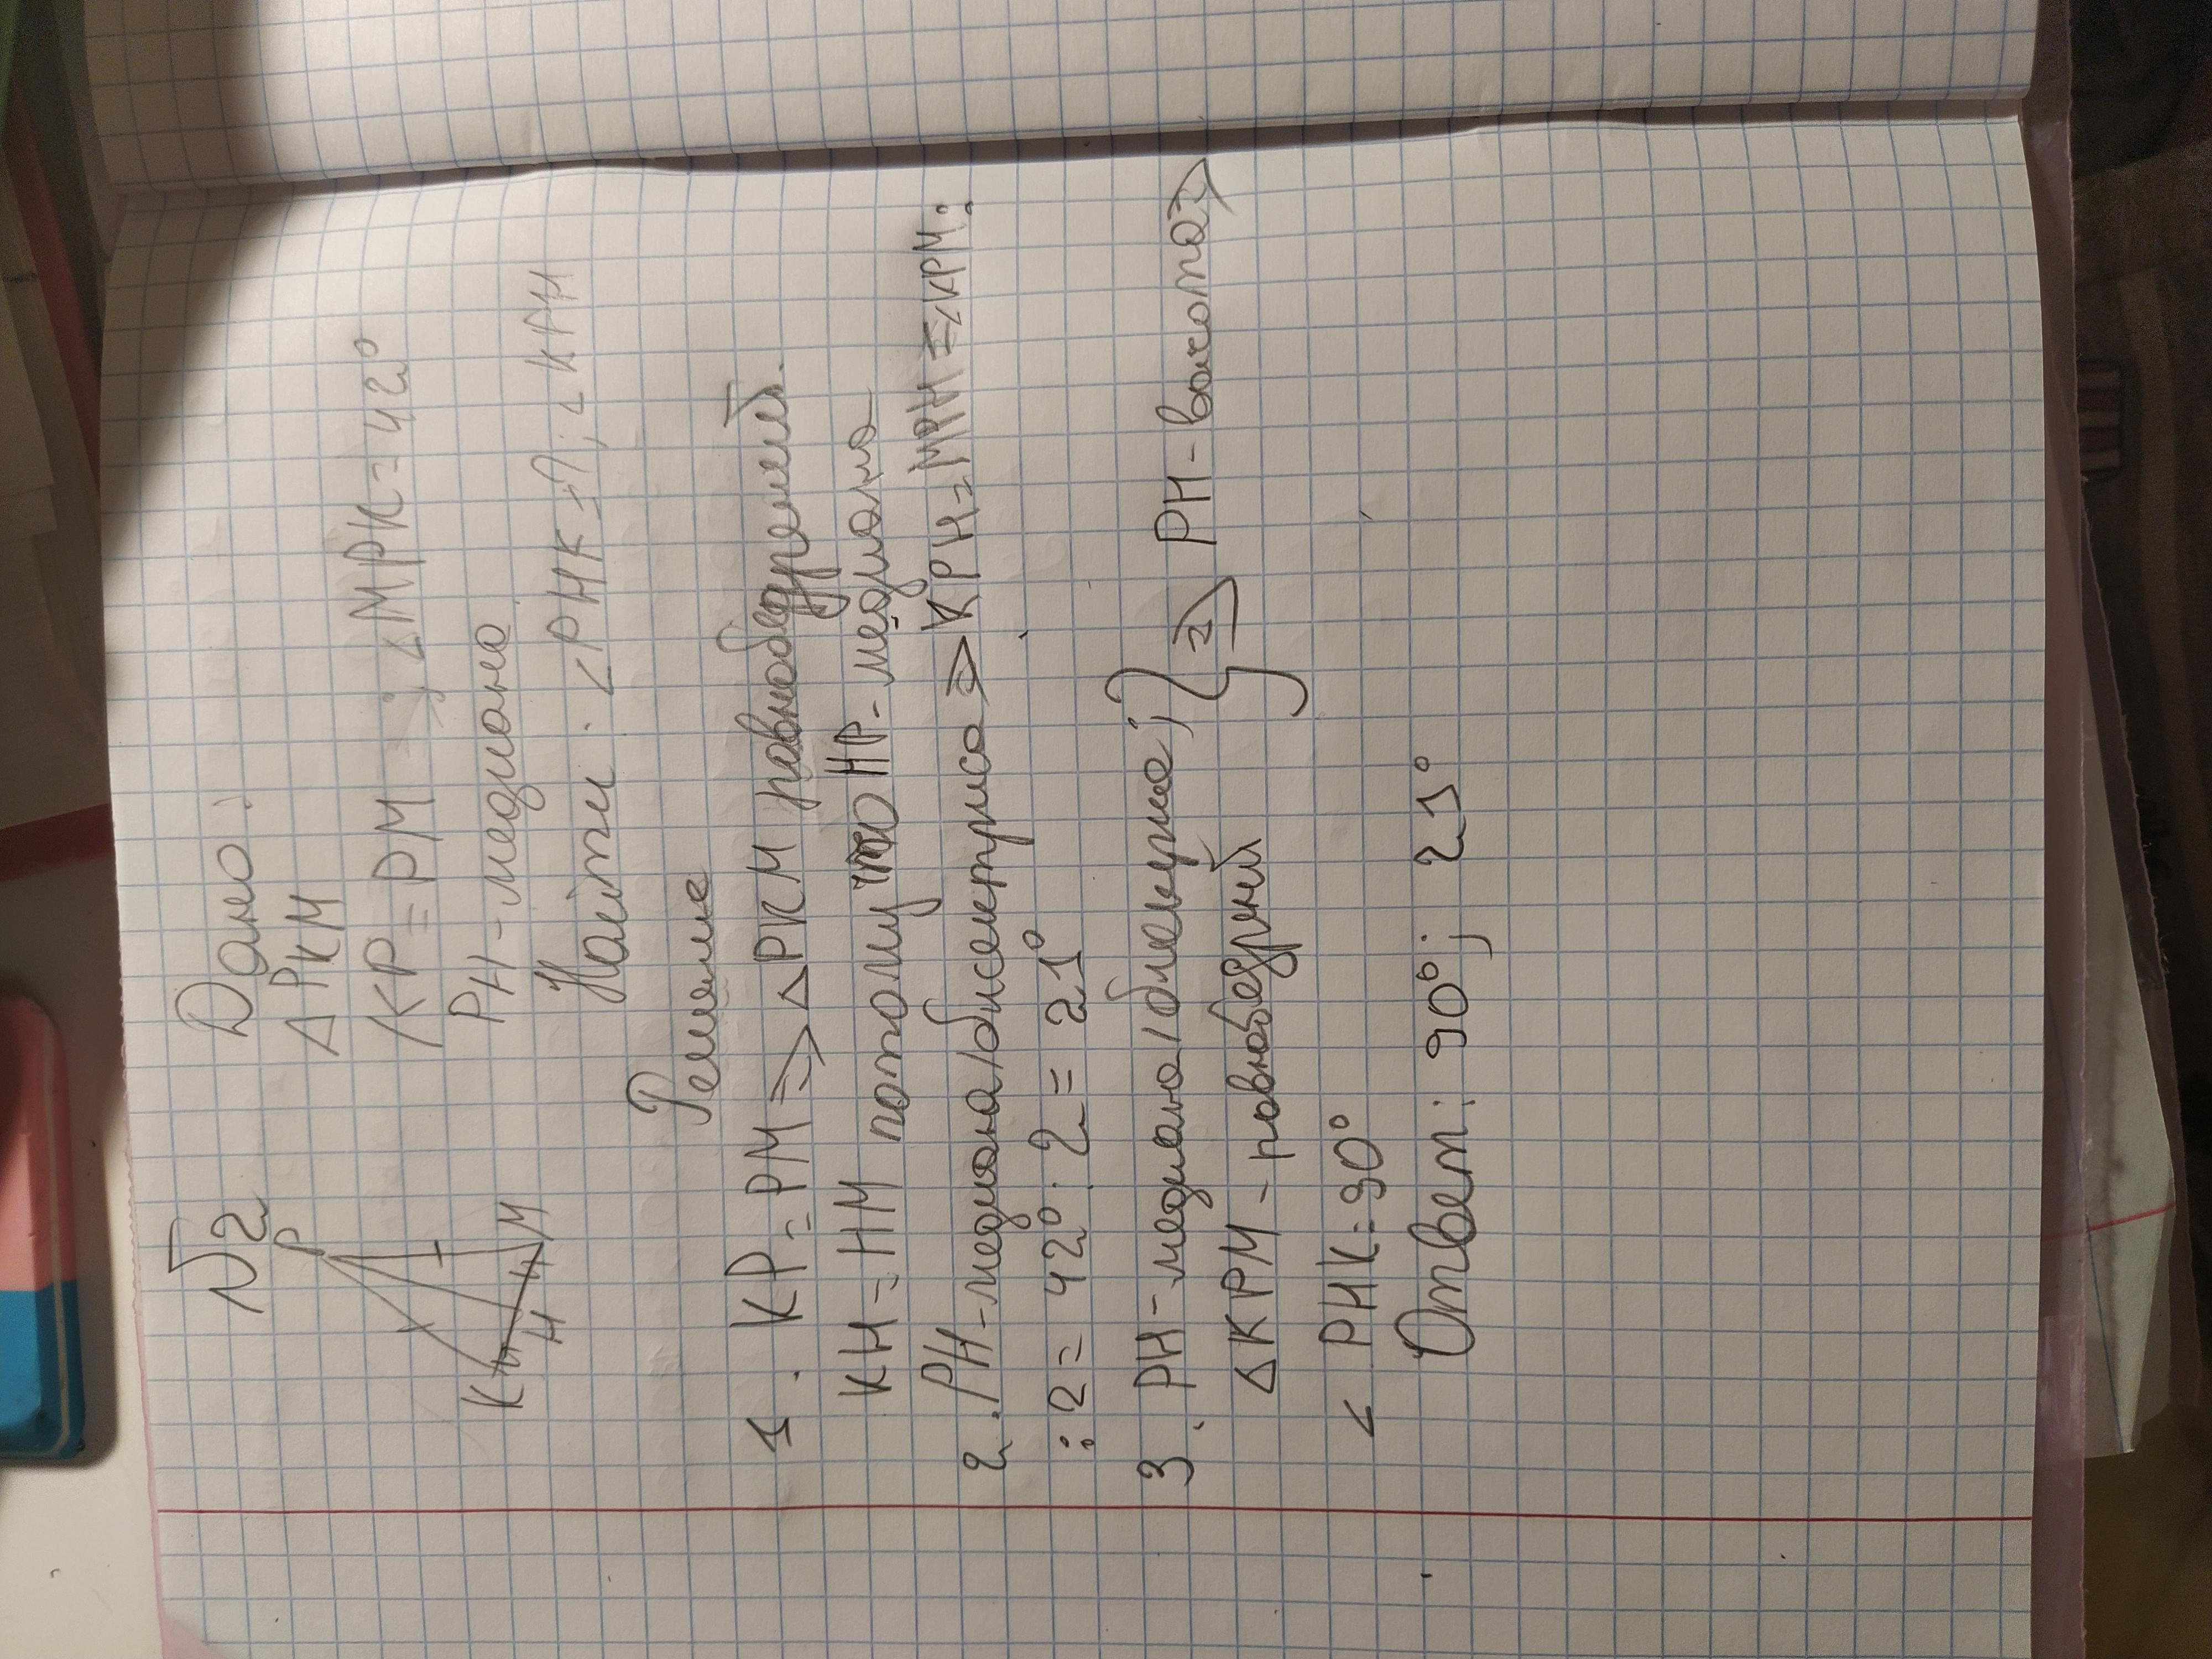 №2
Дано:
△ PKM
KP = PM ; ∠MPK = 42°
PH - медиана
Найти: ∠PHK = ?; ∠KPH
P
K
H
M
Решение
1. KP = PM => △PKM равнобедренный.
KH = HM потому что HP - медиана
2. PH - медиана/биссектриса => KPH = MPH = ∠KPM:
: 2 = 42° : 2 = 21°
3. PH - медиана/биссектриса; } => PH - высота =>
△KPM - равнобедрний
∠ PHK = 90°
Ответ: 90°; 21°